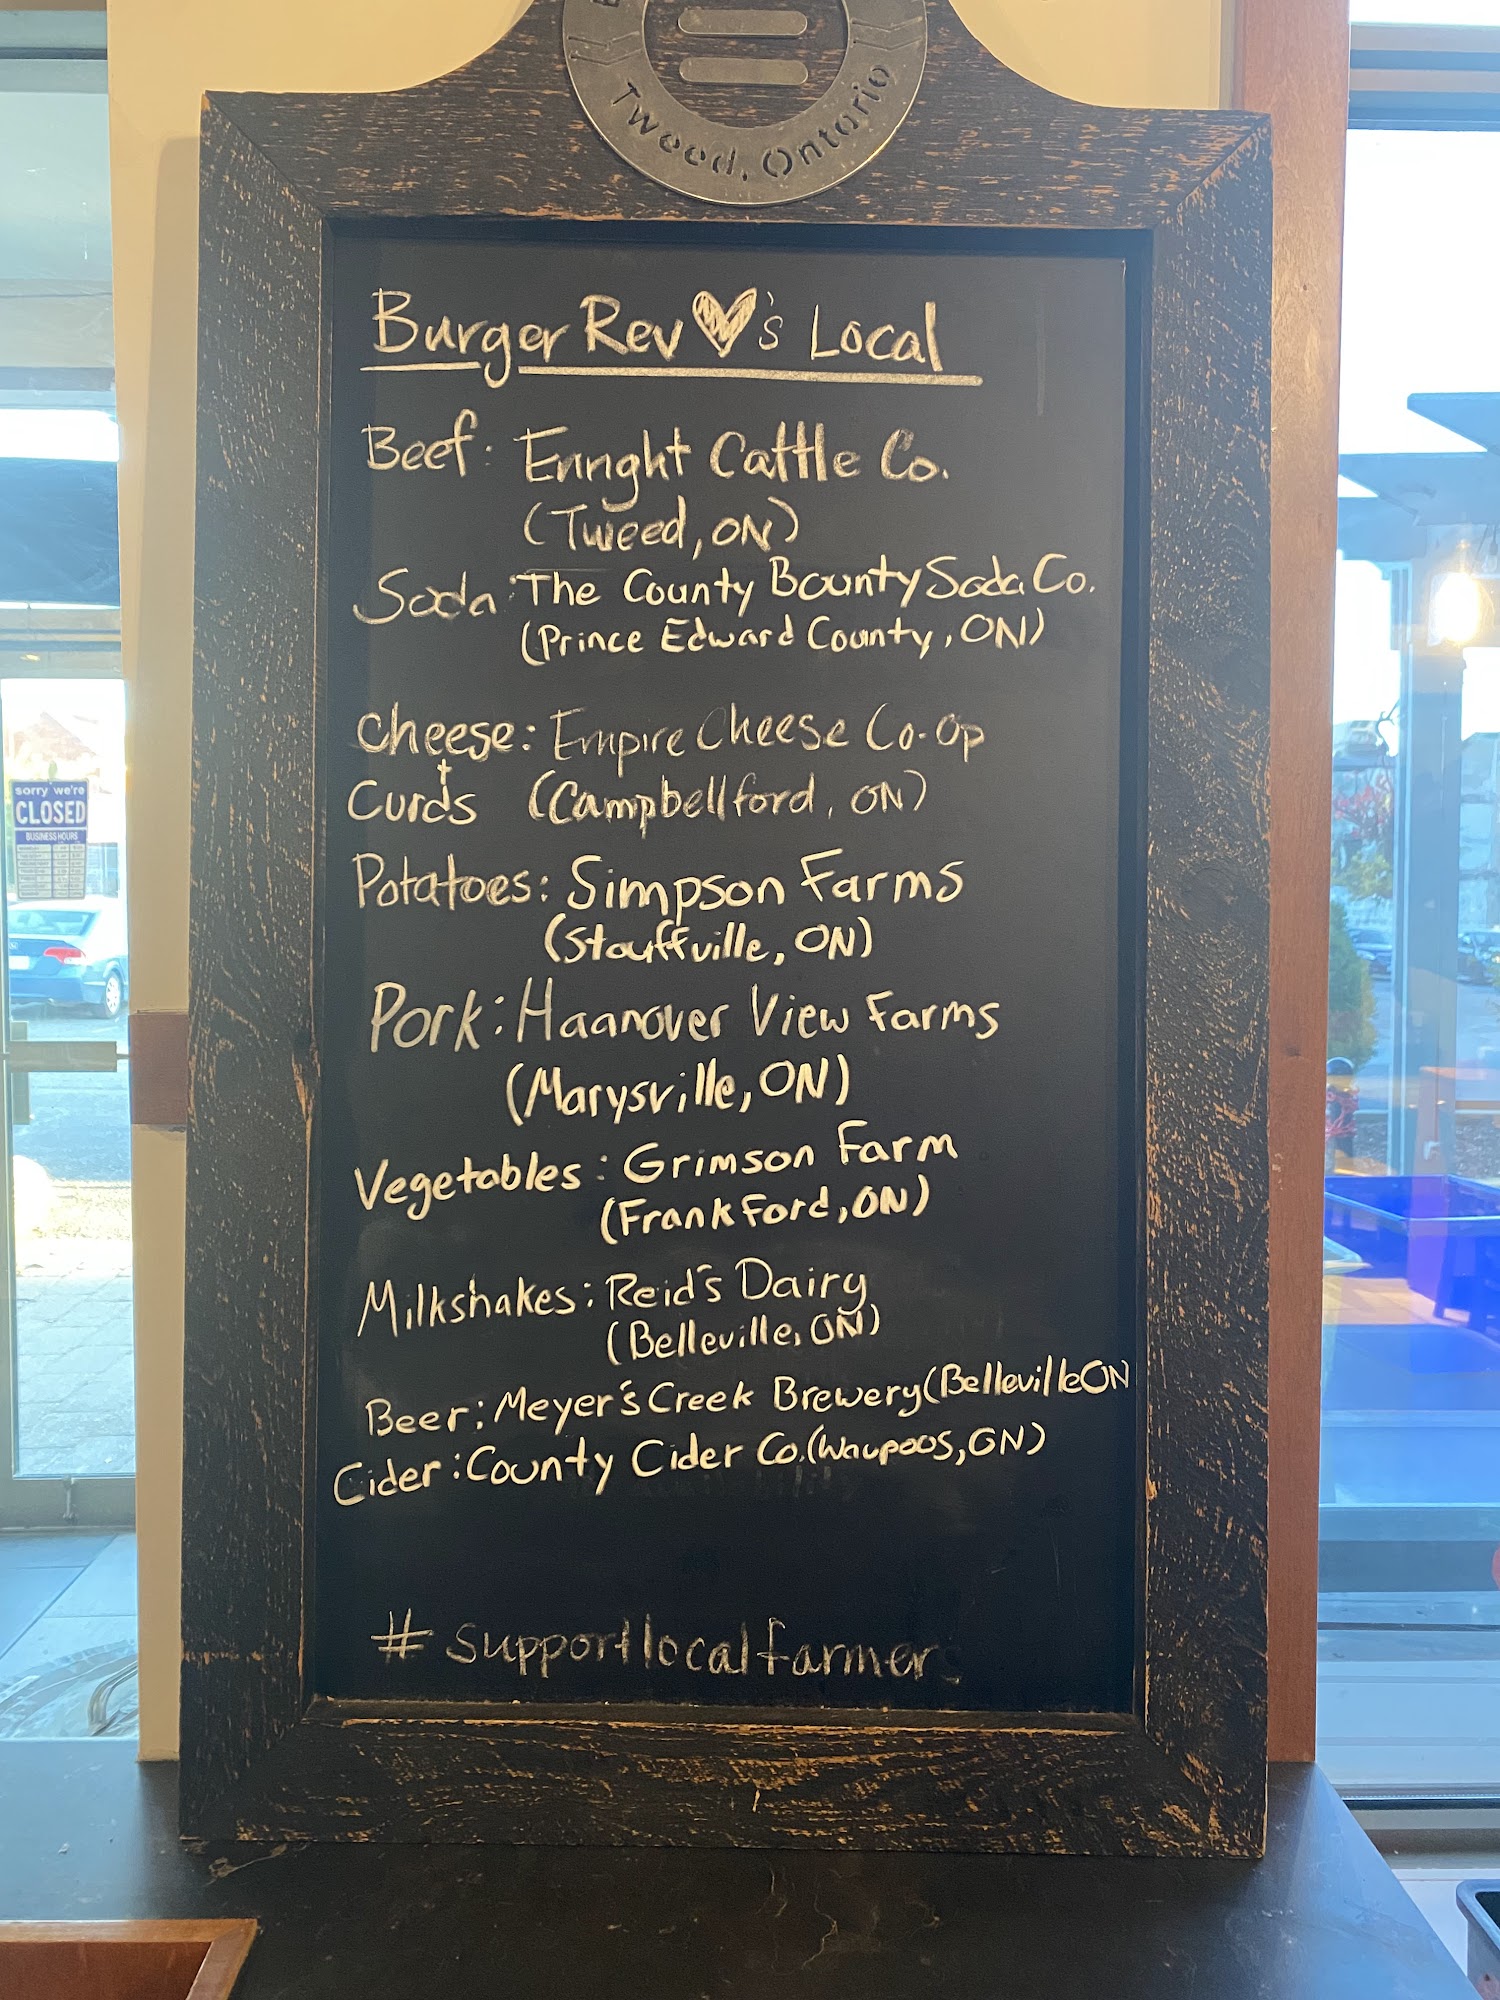 Tweed, Ontario
Burger Rev ♥'s Local
Beef: Enright Cattle Co.
(Tweed, ON)
Soda: The County Bounty Soda Co.
(Prince Edward County, ON)
Cheese: Empire Cheese Co-Op
+
Curds (Campbellford, ON)
Potatoes: Simpson Farms
(Stouffville, ON)
Pork: Haanover View Farms
(Marysville, ON)
Vegetables: Grimson Farm
(Frankford, ON)
Milkshakes: Reid's Dairy
(Belleville, ON)
Beer: Meyer's Creek Brewery (Belleville ON
Cider: County Cider Co. (Waupoos, ON)
#supportlocalfarmers
sorry we're
CLOSED
BUSINESS HOURS